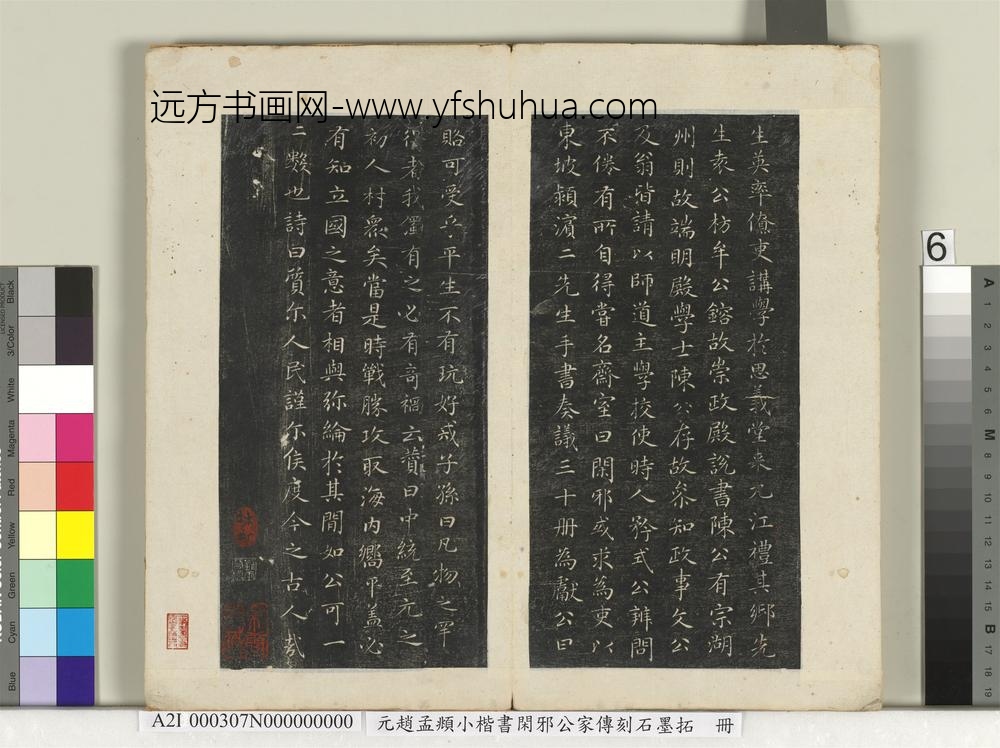 远方书画网-www.yfshuhua.com
生英率僚吏講學於思義堂來元江禮其鄉先
生袁公枋牟公鎔故崇政殿說書陳公有宗湖
州則故端明殿學士陳公存故參知政事文公
及翁皆請以師道主學挍使時人矜式公雖閒
不倦有所自得嘗名齋室曰閑邪或求為吏以
東坡潁濱二先生手書奏議三十册為獻公曰
賂可受乎平生不有玩好戒子孫曰凡物之罕
得者我獨有之必有奇禍云贊曰中統至元之
初人材衆矣當是時戰勝攻取海內嚮平蓋必
有知立國之意者相與弥綸於其閒如公可一
二數也詩曰質尔人民謹尔侯度今之古人哉
6
A2I 000307N000000000
元趙孟頫小楷書閑邪公家傳刻石墨拓 冊
Black
3/Color
White
Magenta
Red
Yellow
Green
Cyan
Blue
A
1
2
3
4
5
6
M
8
9
10
11
12
13
14
15
B
17
18
19